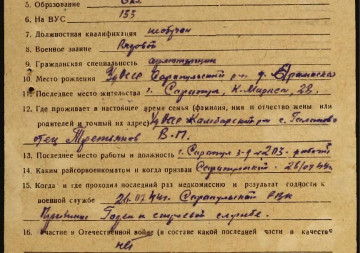 5. Образование 6 кл.
6. На ВУС 133
7. Должностная квалификация необучен
8. Военное звание Рядовой
9. Гражданская специальность
10. Место рождения УАССР Сарапульский р-н д.
11. Последнее место жительства г. Сарапул, К. Маркса, 28,
12. Где проживает в настоящее время семья (фамилия, имя и отчество жены или
родителей и точный на адрес) УАССР Камбарский р-н с.
отец Третьяков В. П.
13. Последнее место работы и должность г. Сарапул з-д № 203. рабочий
14. Каким райгорвоенкоматом и когда призван Сарапульский - 26/07 44г
15. Когда и где проходил последний раз медкомиссию и результат годности к
военной службе 26.07.44г. Сарапульский РВК
Признан Годен к строевой службе.
16. Участие в Отечественной войне (в составе какой последней части и в качестве
нет